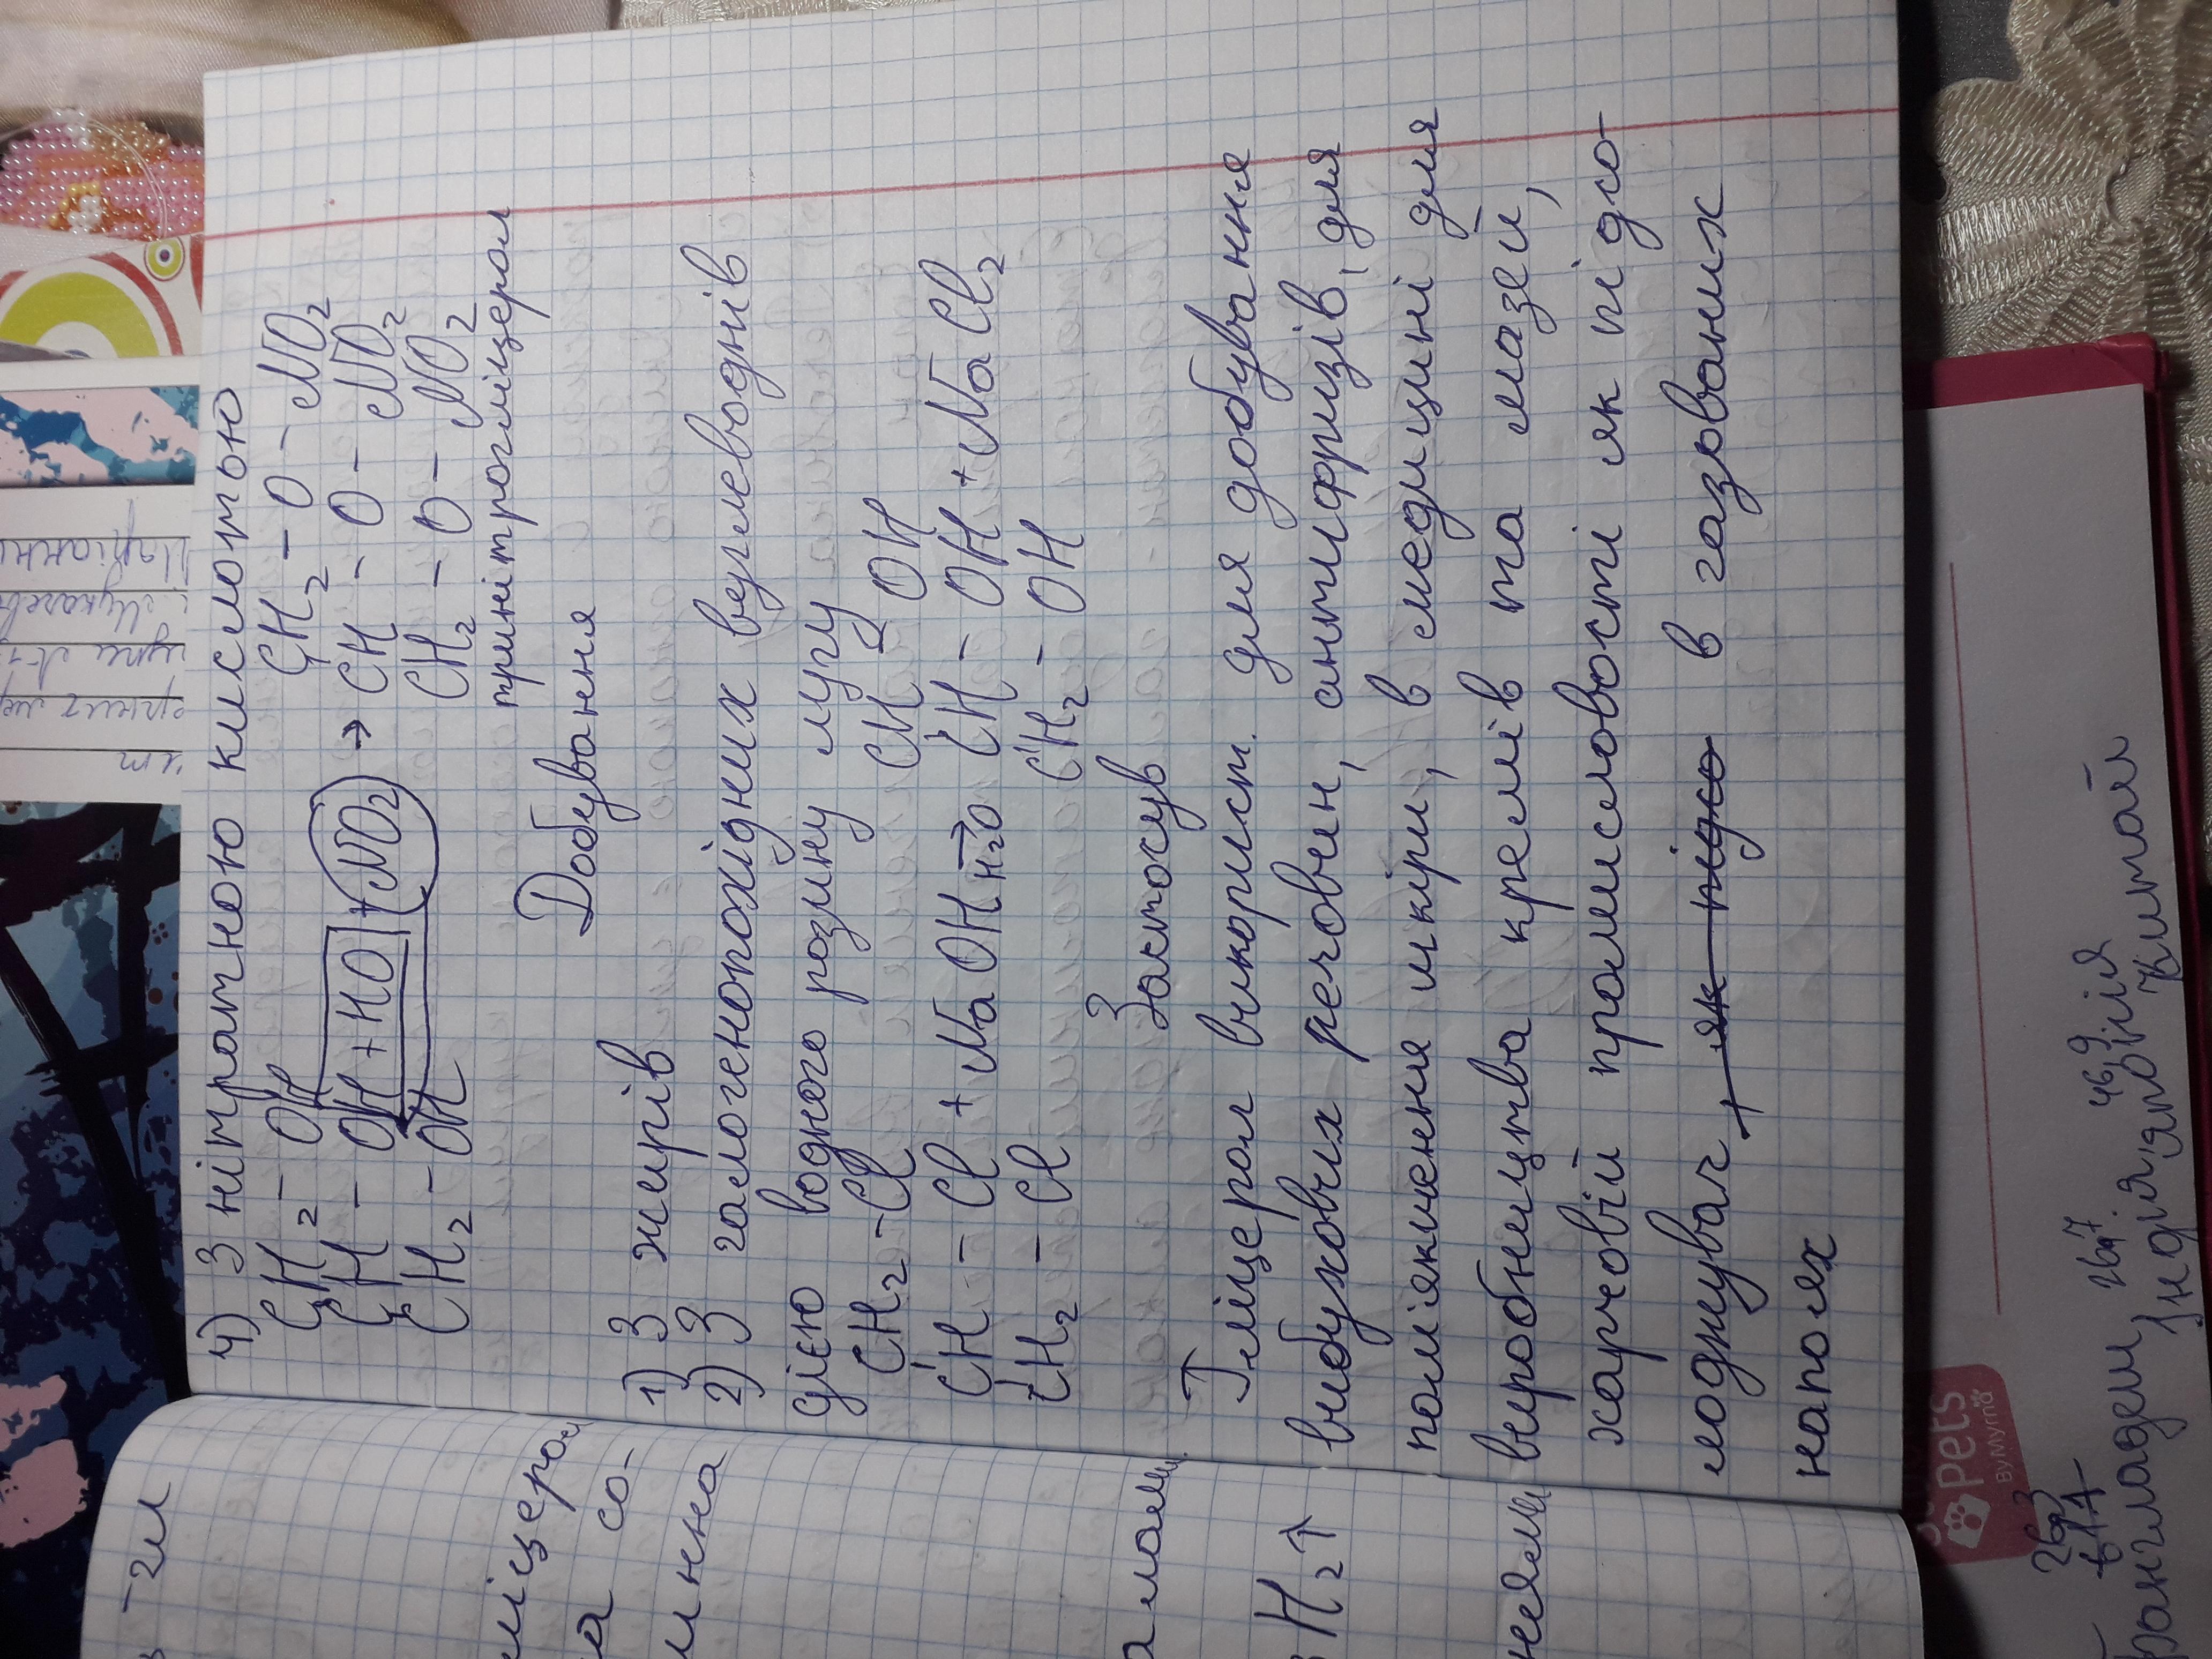 4) З нітратною кислотою
CH2 - OH CH2 - O - NO2
CH - OH + HO - NO2 → CH - O - NO2
CH2 - OH CH2 - O - NO2
тринітрогліцерол
Добування
1) З жирів
2) З галогенопохідних вуглеводнів
дією водного розчину лугу
CH2 - Cl CH2 OH
CH - Cl + NaOH H2O→ CH - OH + NaCl2
CH2 - Cl CH2 - OH
Застосув
Гліцерол використ. для добування
вибухових речовин, антифризів, для
пом'якшення шкіри, в медицині для
виробництва кремів та мазей,
харчовій промисловості як підсо-
лоджувач, як підсо в газованих
напоях
- 2м
ліцерол
а со-
инна
H2↑
Pets
BYMyrna
46,9